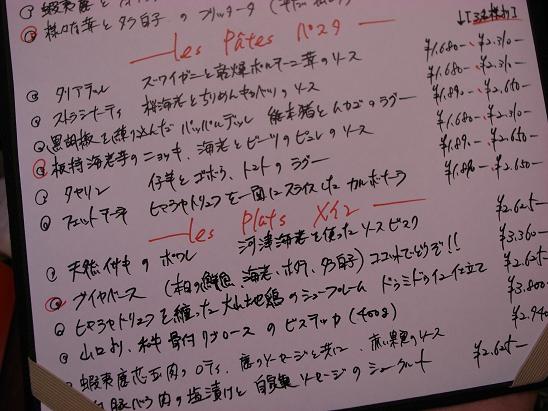 蝦夷鹿と
様々な茸と夕白子のフリッタータ
Les Pâtes パスタ
タリアテッレ ズワイガニと乾燥ポルチーニ茸のソース ¥1.680- ¥2.310-
ストラシナーティ 桜海老とちりめんキャベツのソース ¥1.680- ¥2.310-
黒胡椒を練り込んだパッパルデッレ 熊本猪とムカゴのラグー ¥1.890- ¥2.650-
板持海老芋のニョッキ、海老とビーツのピュレのソース ¥1.680- ¥2.310-
タヤリン 仔羊とゴボウ、トマトのラグー ¥1.890- ¥2.650-
フェットチーネ ヒマラヤトリュフを一面にスライスしたカルボナーラ ¥1.890- ¥2.650-
Les Plats メイン
天然仔牛のポワレ 河津海老を使ったソースビスク ¥2.625-
ブイヤベース (本日の鮮魚、海老、ホタテ、夕白子) ココットでどうぞ!! ¥3.360-
ヒマラヤトリュフを纏った大山地鶏のシュープレーム ドゥミドゥイユ仕立て ¥2.625-
山口より、和牛骨付リブロースのビステッカ (400g) ¥3.800-
蝦夷鹿芯玉肉のロティ、鹿のソーセージと共に、赤い果実のソース ¥2.940-
豚バラ肉の塩漬けと自家製ソーセージのシュークルート ¥2.625-